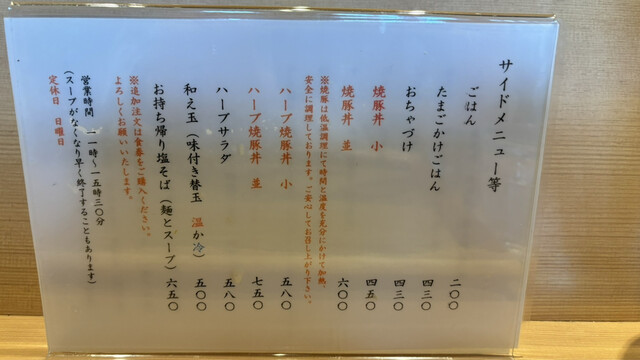 サイドメニュー等
ごはん 二〇〇
たまごかけごはん 四三〇
おちゃづけ 四三〇
焼豚丼 小 四五〇
焼豚丼 並 六〇〇
※焼豚は低温調理にて時間と温度を充分にかけて加熱、
安全に調理しております。ご安心してお召し上がり下さい。
ハーブ焼豚丼 小 五八〇
ハーブ焼豚丼 並 七五〇
ハーブサラダ 五八〇
和え玉(味付き替玉 温か冷) 五〇〇
お持ち帰り塩そば(麺とスープ) 六五〇
※追加注文は食券をご購入ください。
よろしくお願いいたします。
営業時間 一一時〜一五時三〇分
(スープがなくなり早く終了することもあります)
定休日 日曜日